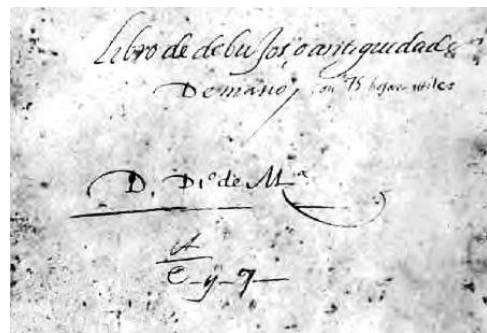 Libro de debuJos, o antiguedades
De mano, con 75 hojas utiles
D. D.º de M.ª
A
C-y-7-